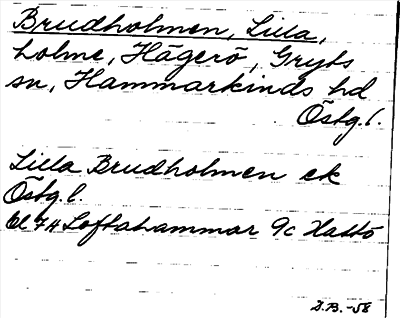 Brudholmen, Lilla,
holme, Hägerö, Gryts
sn, Hammarkinds hd
Östg.l.
Lilla Brudholmen ek
Östg.l.
Bl 7H Loftahammar 9c Hattö
D.B. -58